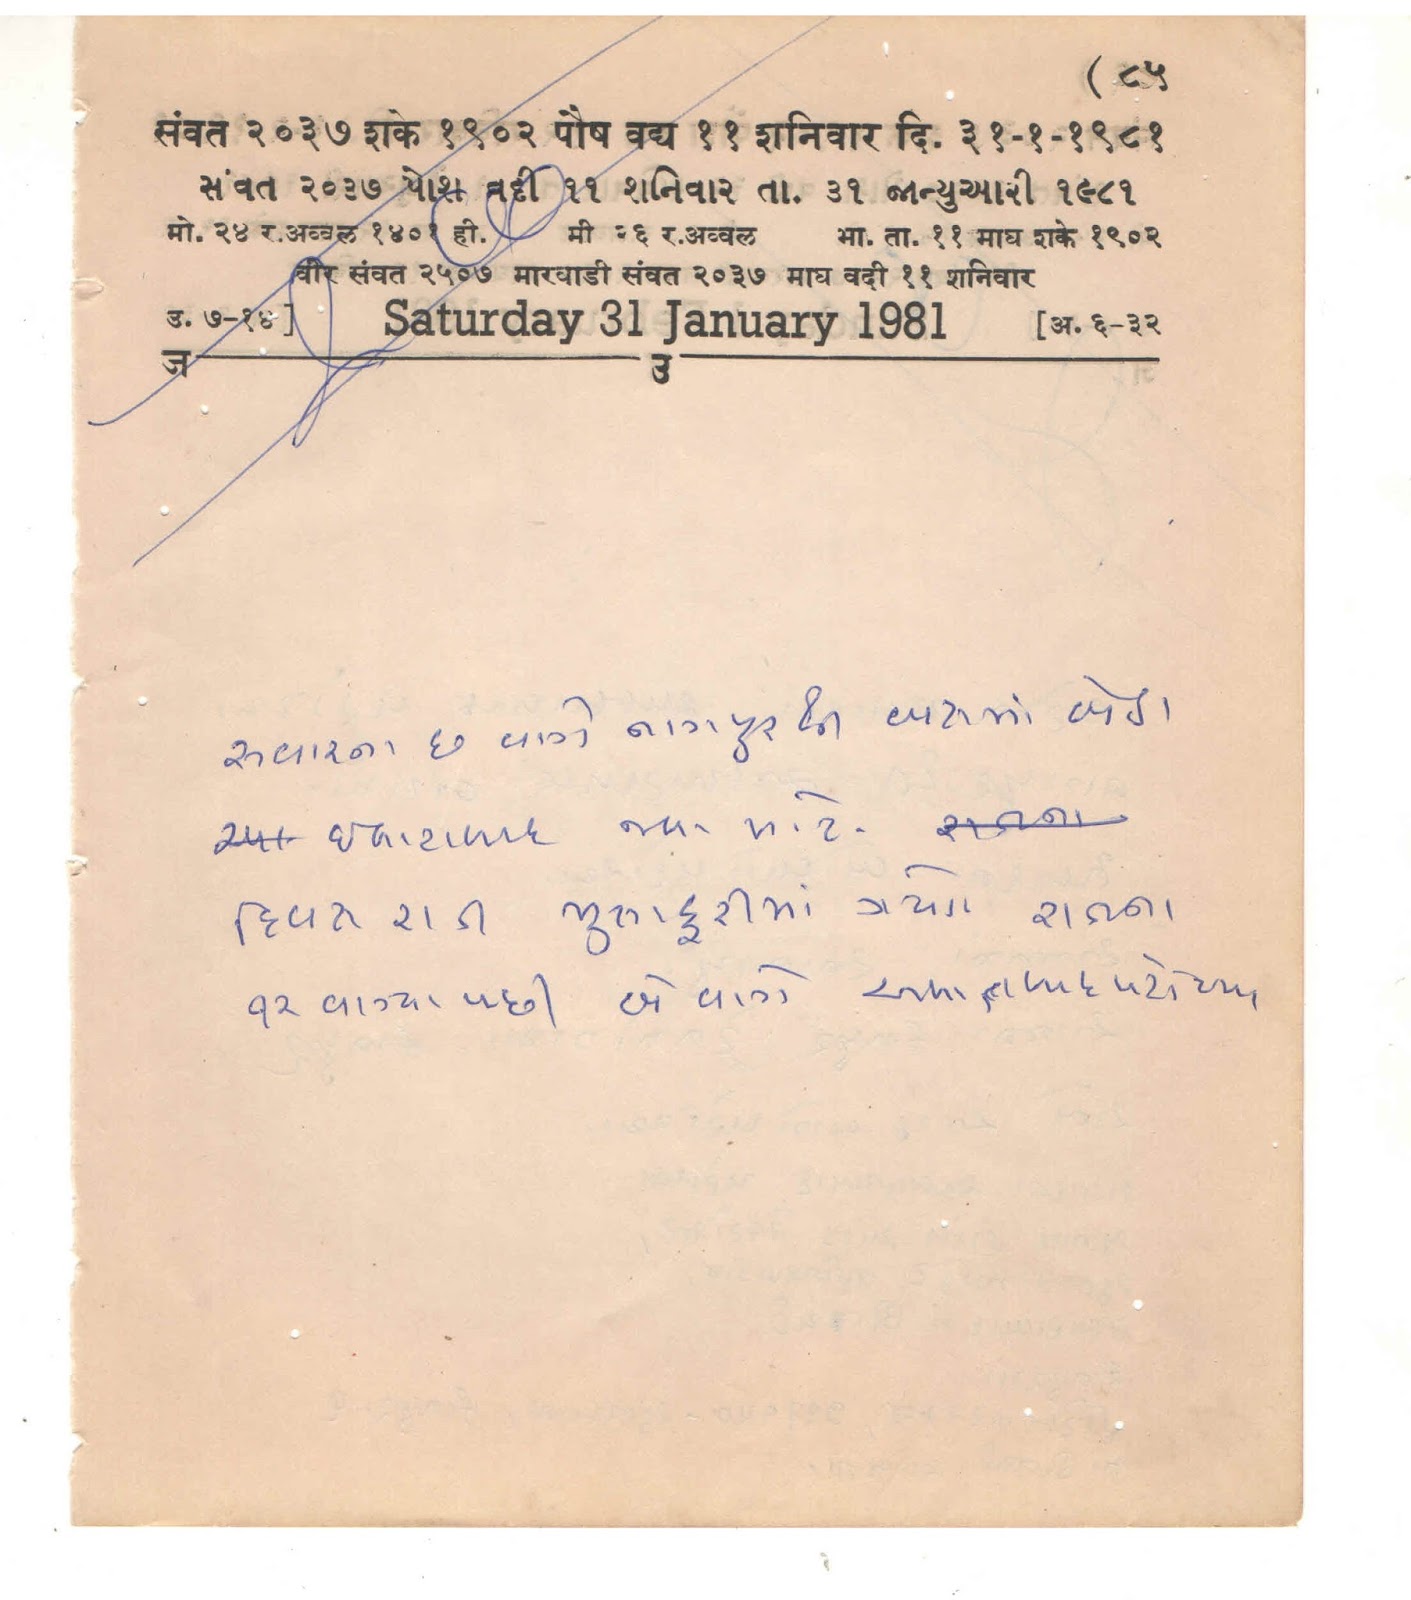 (૮૫
संवत २०३७ शके १९०२ पौष वद्य ११ शनिवार दि. ३१-१-१९८१
સંવત ૨૦૩૭ પોશ વદી ૧૧ શનિવાર તા. ૩૧ જાન્યુઆરી ૧૯૮૧
मो. २४ र.अव्वल १४०१ ही. मी २६ र.अव्वल भा. ता. ११ माघ शके १९०२
वीर संवत २५०७ मारवाडी संवत २०३७ माघ वदी ११ शनिवार
उ. ७-१४] Saturday 31 January 1981 [अ. ६-३२
ज उ
સવારના છ વાગે નાગપુરથી બસમાં બેઠા
જવા માટે
દિવસ રાત મુસાફરીમાં ગયો રાતના
૧૨ વાગ્યા પછી બે વાગે